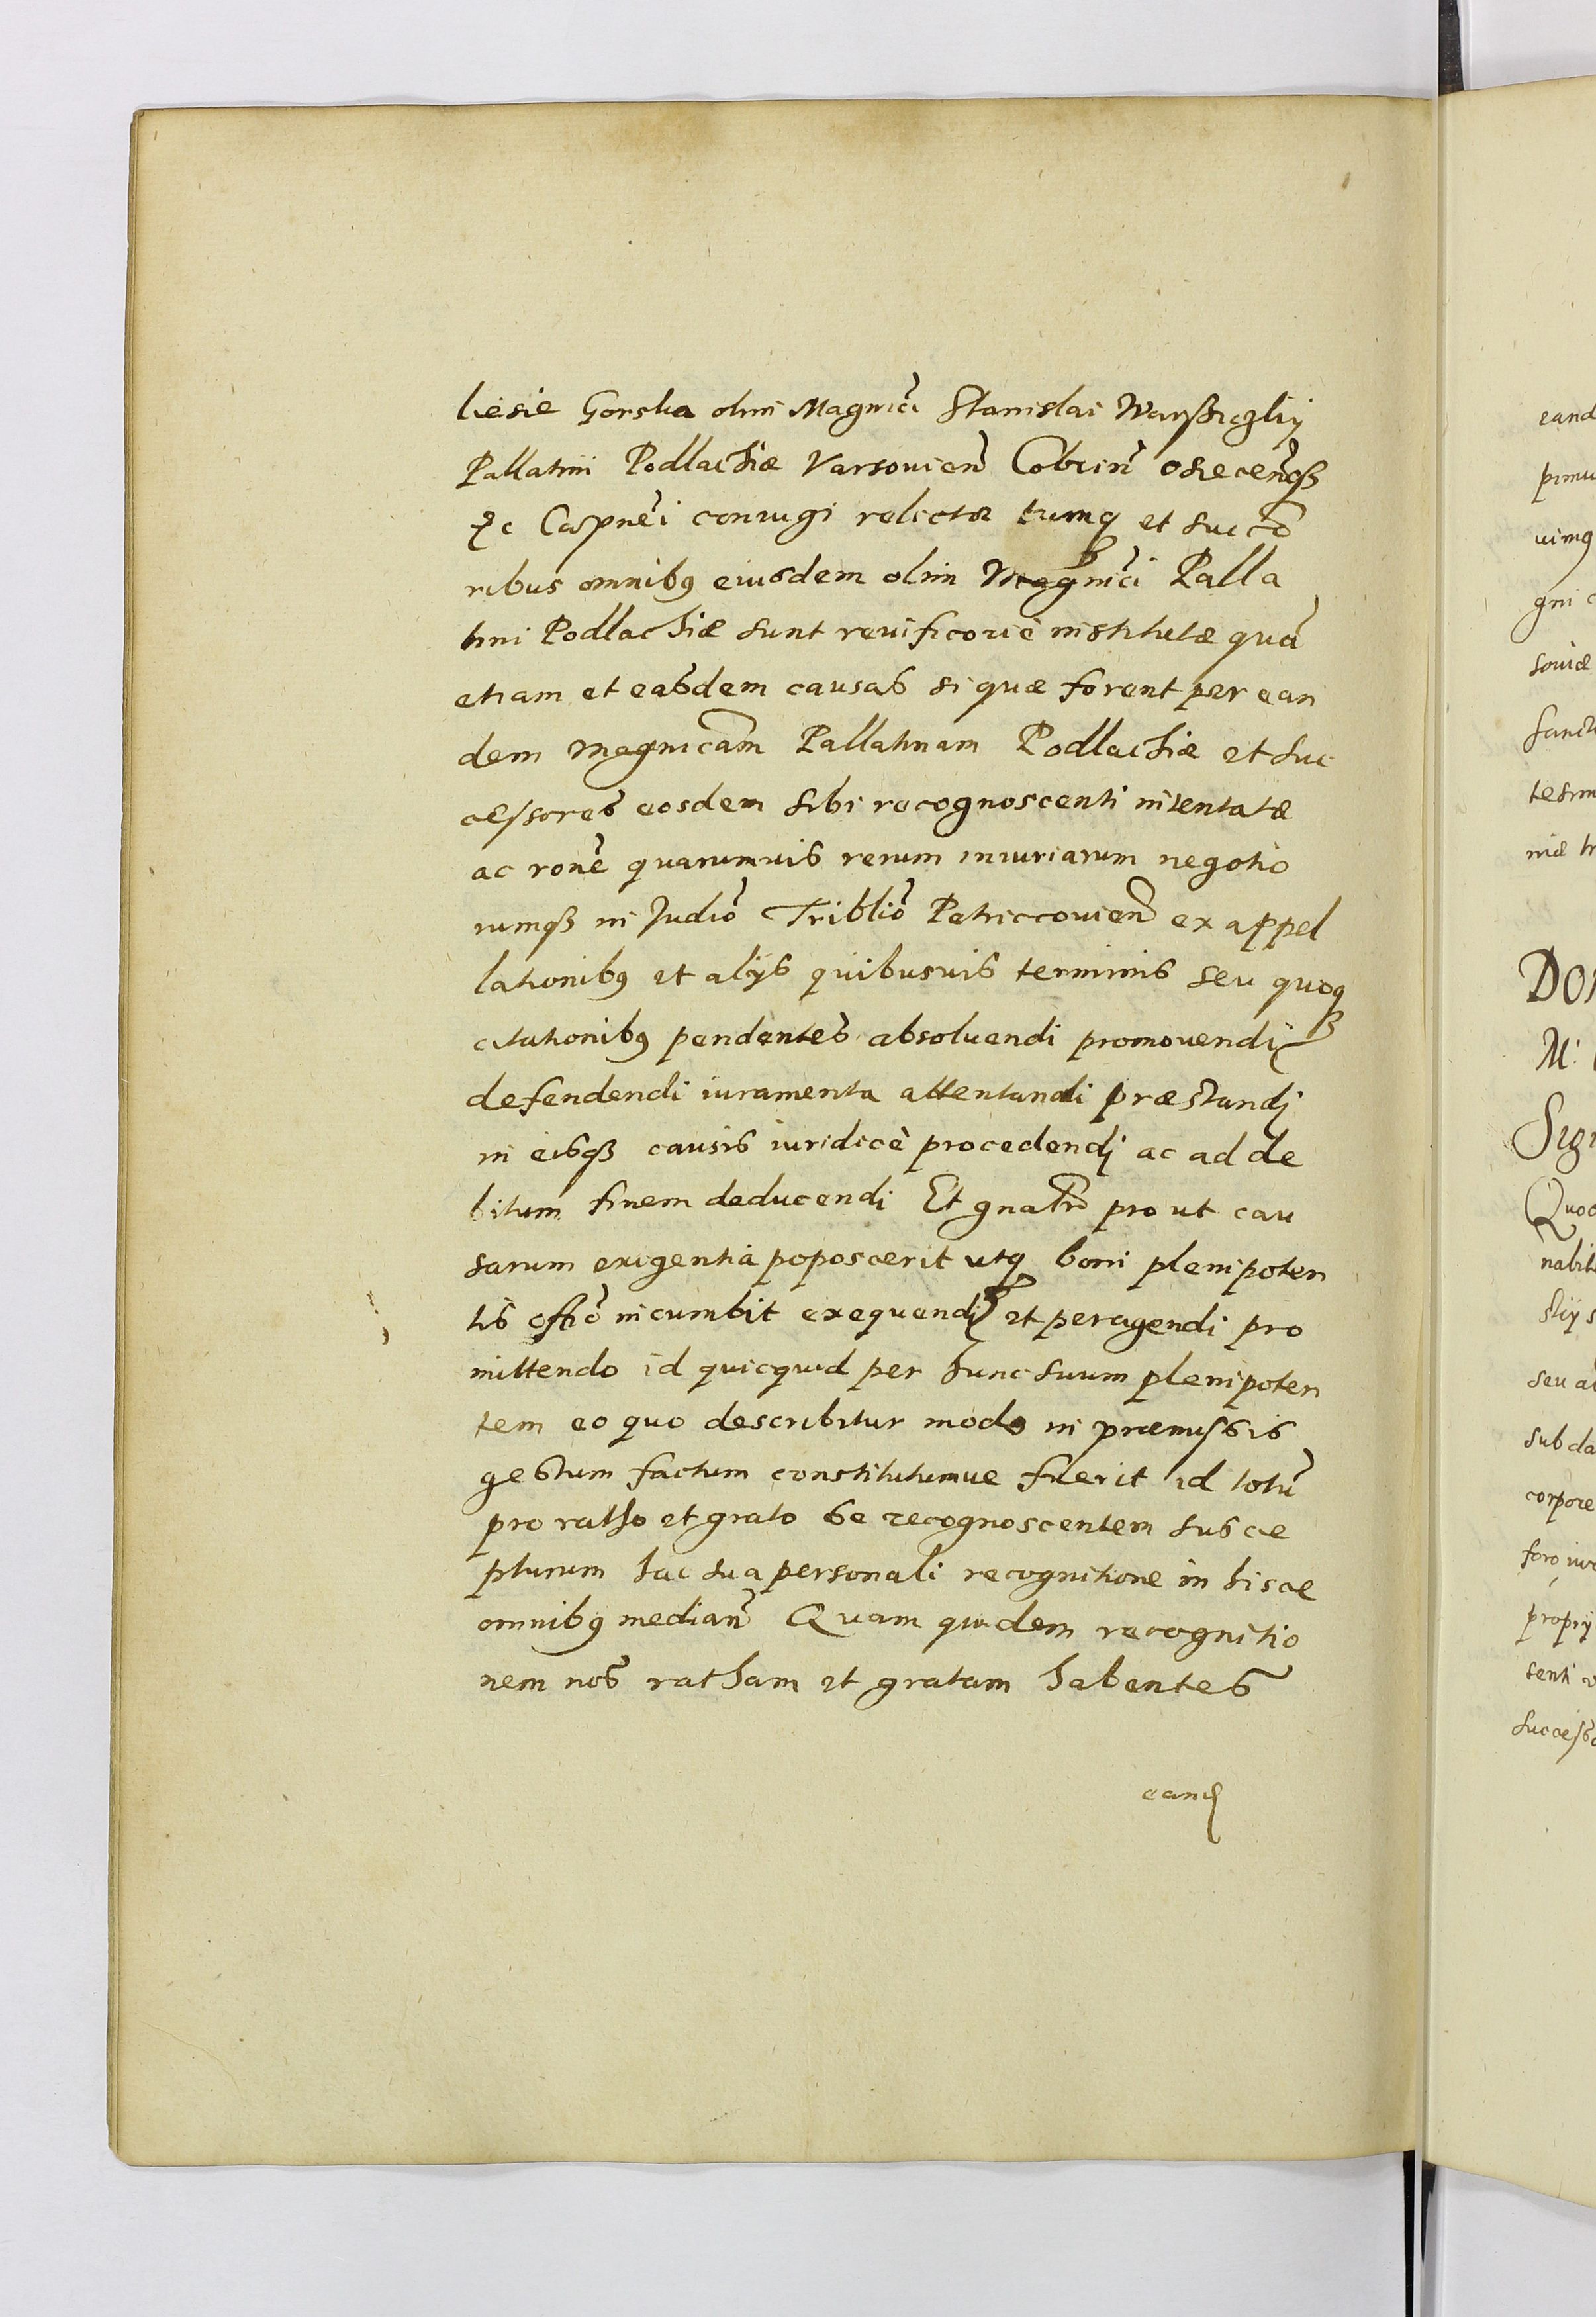 liesie Gorska olim Magnici Stanislai Warszẏckÿ
Pallatini Podlachiæ Varsovien̄ Cobrin̄ Osiecen̄qȝ
ꝛc Capnēi coniugi relictæ tumqȝ et succō
ribus omnibꝰ eiusdem olim Magnīci Palla
tini Podlachiæ sunt revificoriè institutæ quā
etiam et easdem causas si quæ forent per ean
dem magnicam̄ Pallatinam Podlachiæ et suc
cessores eosdem sibi recognoscenti intentatæ
ac ronē quarumvis rerum iniuriarum negotio
rumqȝ in Judiō Tribliō Petriccovien̄ ex appel
lationibꝰ et alÿs quibusvis terminis seu quoqȝ
citationibꝰ pendentes absolvendi promovendi
defendendi iuramenta attentandi præstandj
in eisqȝ causis iuridicè procedendj ac ad de
bitum finem deducendi Et gnatr̄ pro ut cau
sarum exigentia poposcerit utqȝ boni plenipoten
tis offō incumbit exequendi et peragendi pro
mittendo id quicquid per hunc suum plenipoten
tem eo quo describitur modo in præmissis
gestum factum constitutumve fuerit id totū
pro ratho et grato se recognoscentem susce
pturum hac sua personali recognitione in hisce
omnibꝰ median̄ Quam quidem recognitio
nem nos ratham et gratam habentes
eand
eand
primu
vimꝰ
gni
soviæ
Sanct
tesim
niæ
DO
M:
Sigi
Quod
nabit
slÿ s
seu a
sub da
corpore
foro iur
proprÿ
senti
success